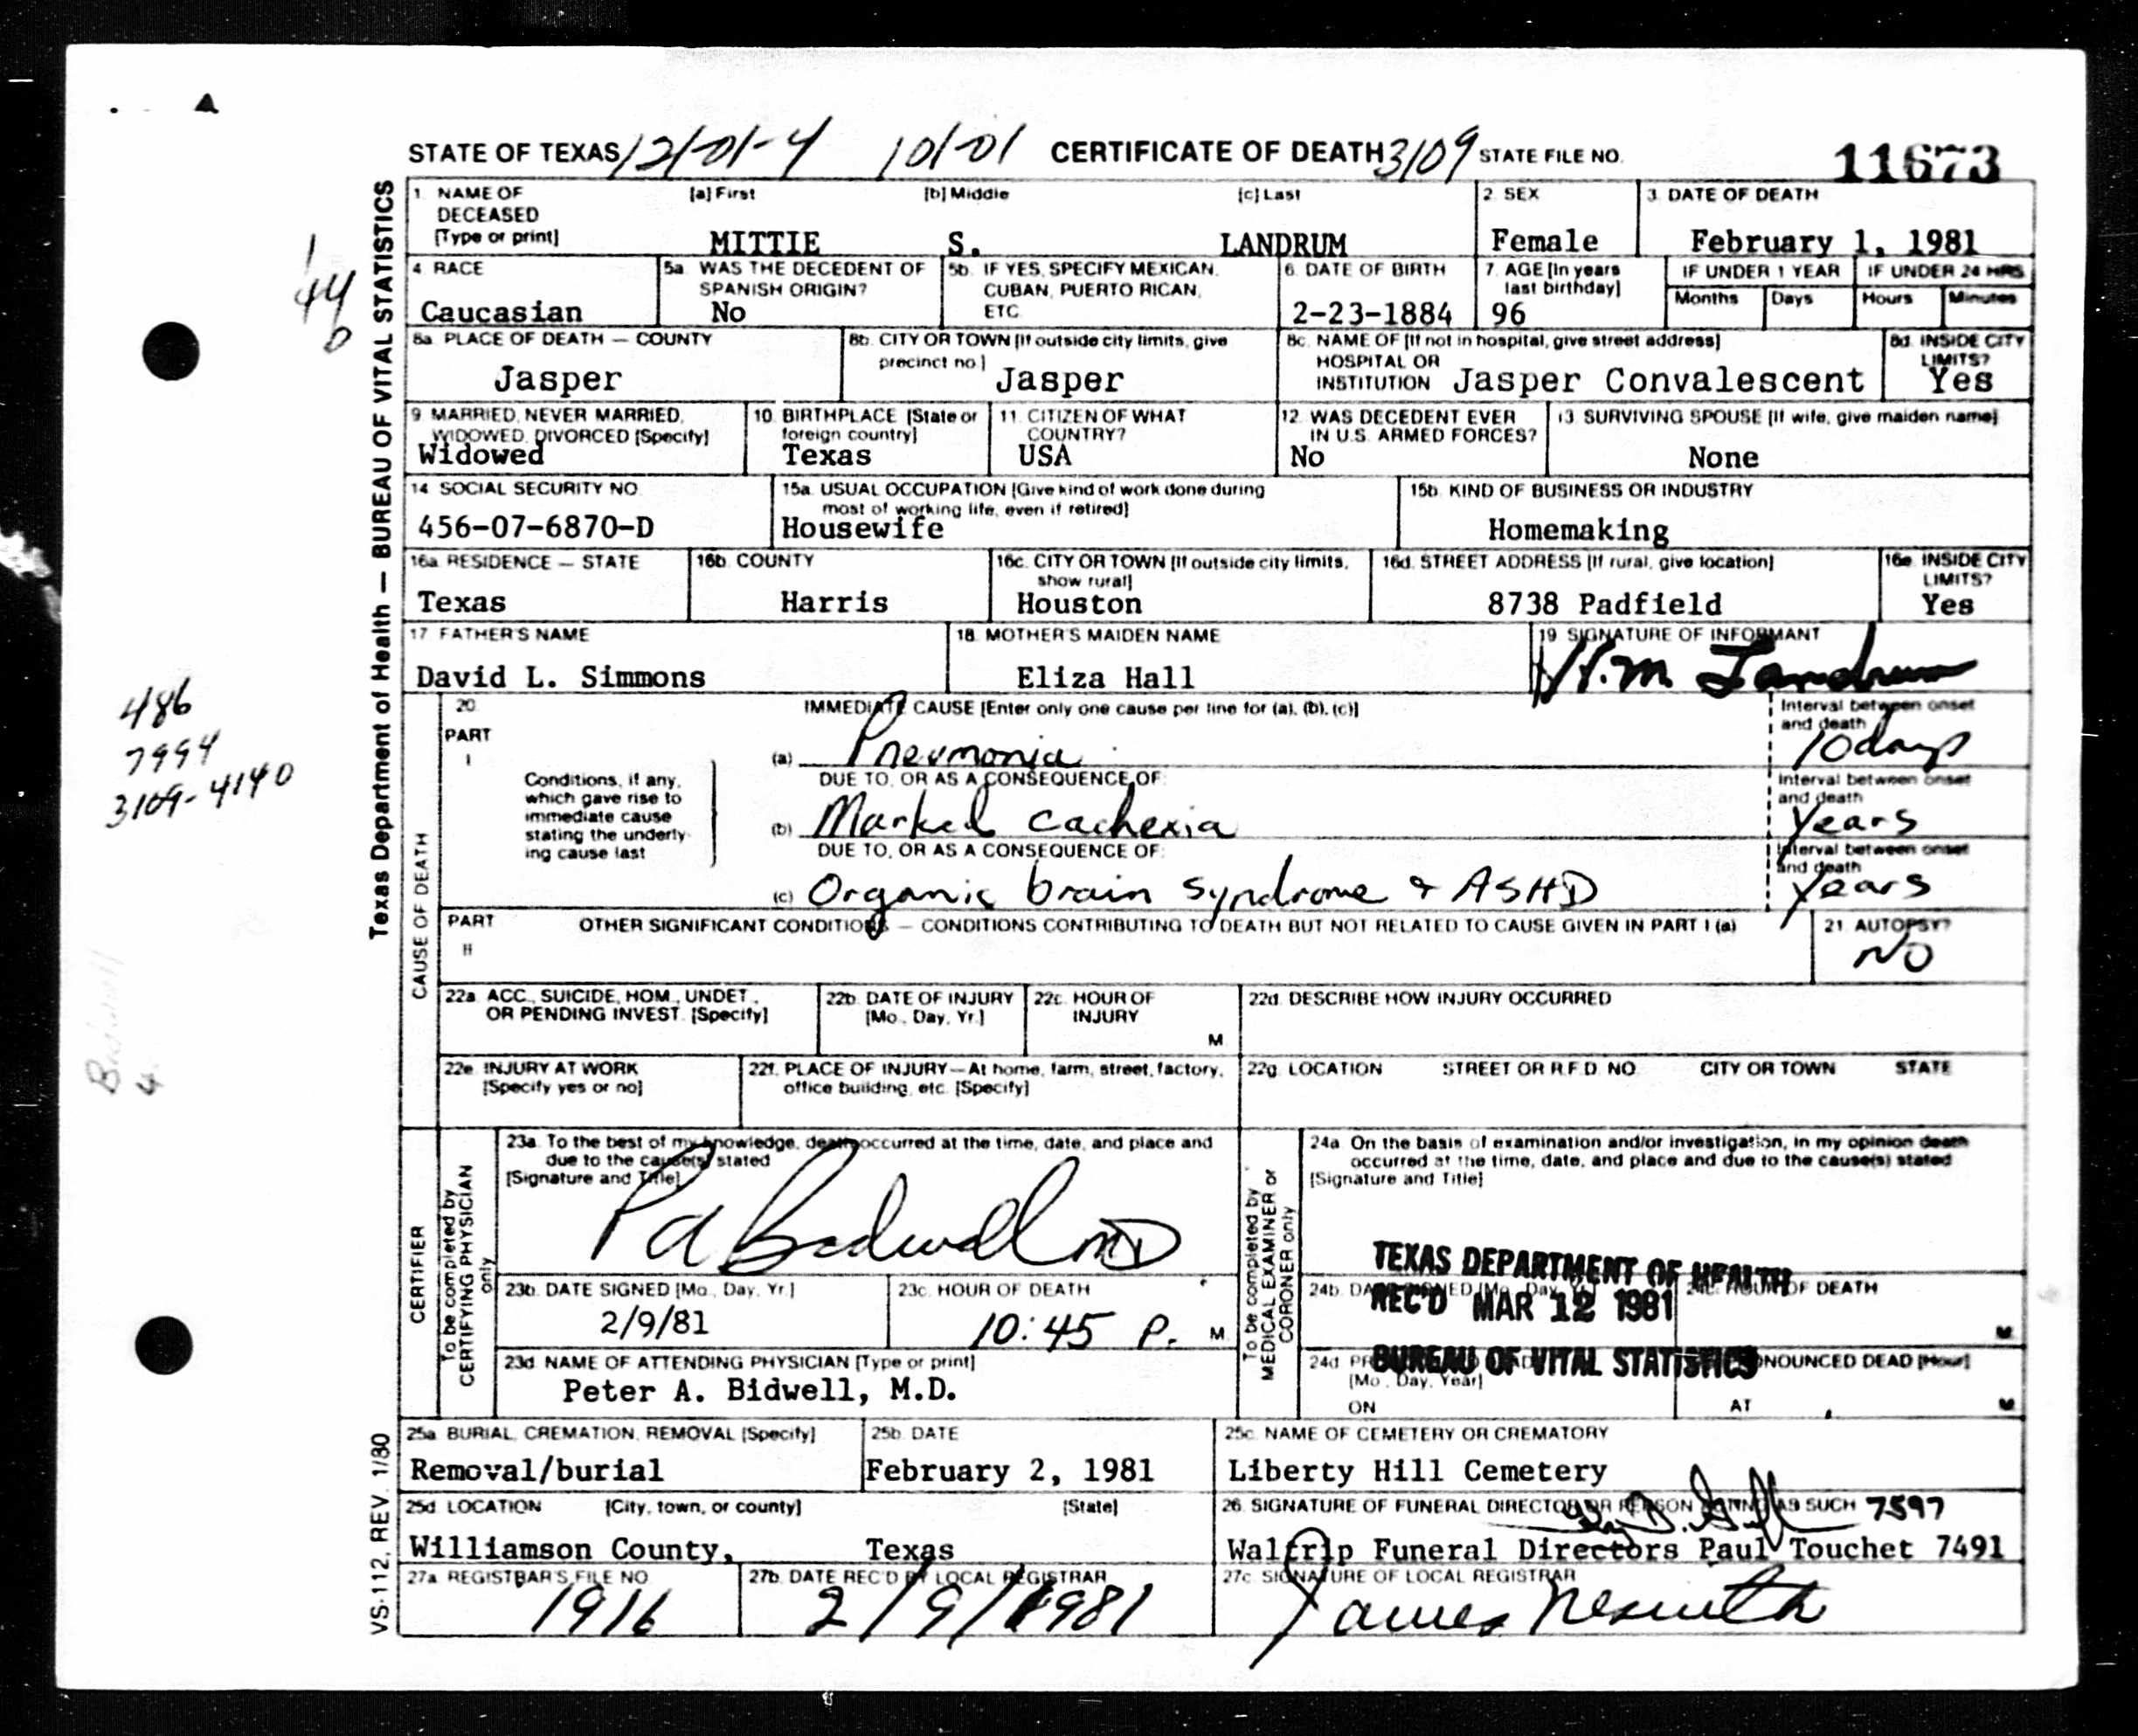 STATE OF TEXAS 12/-01-4 10/-01 CERTIFICATE OF DEATH 3109 STATE FILE NO. 11673
Texas Department of Health — BUREAU OF VITAL STATISTICS
VS-112, REV. 1/80
1 NAME OF DECEASED [Type or print] [a] First [b] Middle [c] Last
MITTIE S. LANDRUM
2 SEX
Female
3 DATE OF DEATH
February 1, 1981
4 RACE
Caucasian
5a WAS THE DECEDENT OF SPANISH ORIGIN?
No
5b IF YES, SPECIFY MEXICAN, CUBAN, PUERTO RICAN, ETC
6 DATE OF BIRTH
2-23-1884
7 AGE [In years last birthday]
96
IF UNDER 1 YEAR
Months Days
IF UNDER 24 HRS
Hours Minutes
8a PLACE OF DEATH — COUNTY
Jasper
8b CITY OR TOWN [If outside city limits, give precinct no]
Jasper
8c NAME OF [If not in hospital, give street address] HOSPITAL OR INSTITUTION
Jasper Convalescent
8d INSIDE CITY LIMITS?
Yes
9 MARRIED, NEVER MARRIED, WIDOWED, DIVORCED [Specify]
Widowed
10 BIRTHPLACE [State or foreign country]
Texas
11 CITIZEN OF WHAT COUNTRY?
USA
12 WAS DECEDENT EVER IN U.S. ARMED FORCES?
No
13 SURVIVING SPOUSE [If wife, give maiden name]
None
14 SOCIAL SECURITY NO
456-07-6870-D
15a USUAL OCCUPATION [Give kind of work done during most of working life, even if retired]
Housewife
15b KIND OF BUSINESS OR INDUSTRY
Homemaking
16a RESIDENCE — STATE
Texas
16b COUNTY
Harris
16c CITY OR TOWN [If outside city limits, show rural]
Houston
16d STREET ADDRESS [If rural, give location]
8738 Padfield
16e INSIDE CITY LIMITS?
Yes
17 FATHER'S NAME
David L. Simmons
18 MOTHER'S MAIDEN NAME
Eliza Hall
19 SIGNATURE OF INFORMANT
H.M Landrum
44
486
7994
3109-4140
CAUSE OF DEATH
20 PART I
IMMEDIATE CAUSE [Enter only one cause per line for (a), (b), (c)]
(a) Pneumonia
Interval between onset and death
10 days
Conditions, if any, which gave rise to immediate cause stating the underlying cause last
DUE TO, OR AS A CONSEQUENCE OF:
(b) Marked cachexia
Interval between onset and death
Years
DUE TO, OR AS A CONSEQUENCE OF:
(c) Organic brain syndrome & ASHD
Interval between onset and death
Years
PART II
OTHER SIGNIFICANT CONDITIONS — CONDITIONS CONTRIBUTING TO DEATH BUT NOT RELATED TO CAUSE GIVEN IN PART I (a)
21 AUTOPSY?
NO
22a ACC., SUICIDE, HOM., UNDET., OR PENDING INVEST. [Specify]
22b DATE OF INJURY [Mo., Day, Yr.]
22c HOUR OF INJURY
M
22d DESCRIBE HOW INJURY OCCURRED
22e INJURY AT WORK [Specify yes or no]
22f PLACE OF INJURY—At home, farm, street, factory, office building, etc. [Specify]
22g LOCATION STREET OR R.F.D. NO. CITY OR TOWN STATE
CERTIFIER
To be completed by CERTIFYING PHYSICIAN only
23a To the best of my knowledge, death occurred at the time, date, and place and due to the cause(s) stated
[Signature and Title]
P A Bidwell MD
23b DATE SIGNED [Mo., Day, Yr.]
2/9/81
23c HOUR OF DEATH
10:45 P. M
23d NAME OF ATTENDING PHYSICIAN [Type or print]
Peter A. Bidwell, M.D.
To be completed by MEDICAL EXAMINER or CORONER only
24a On the basis of examination and/or investigation, in my opinion death occurred at the time, date, and place and due to the cause(s) stated
[Signature and Title]
TEXAS DEPARTMENT OF HEALTH
REC'D MAR 12 1981
BUREAU OF VITAL STATISTICS
24b DATE SIGNED [Mo., Day, Yr.]
24c HOUR OF DEATH
M
24d PRONOUNCED DEAD [Mo., Day, Year]
ON
PRONOUNCED DEAD [Hour]
AT M
25a BURIAL, CREMATION, REMOVAL [Specify]
Removal/burial
25b DATE
February 2, 1981
25c NAME OF CEMETERY OR CREMATORY
Liberty Hill Cemetery
25d LOCATION [City, town, or county] [State]
Williamson County, Texas
26 SIGNATURE OF FUNERAL DIRECTOR OR PERSON ACTING AS SUCH 7597
Waltrip Funeral Directors Paul Touchet 7491
27a REGISTRAR'S FILE NO
1916
27b DATE REC'D BY LOCAL REGISTRAR
2/9/1981
27c SIGNATURE OF LOCAL REGISTRAR
James Nesmith